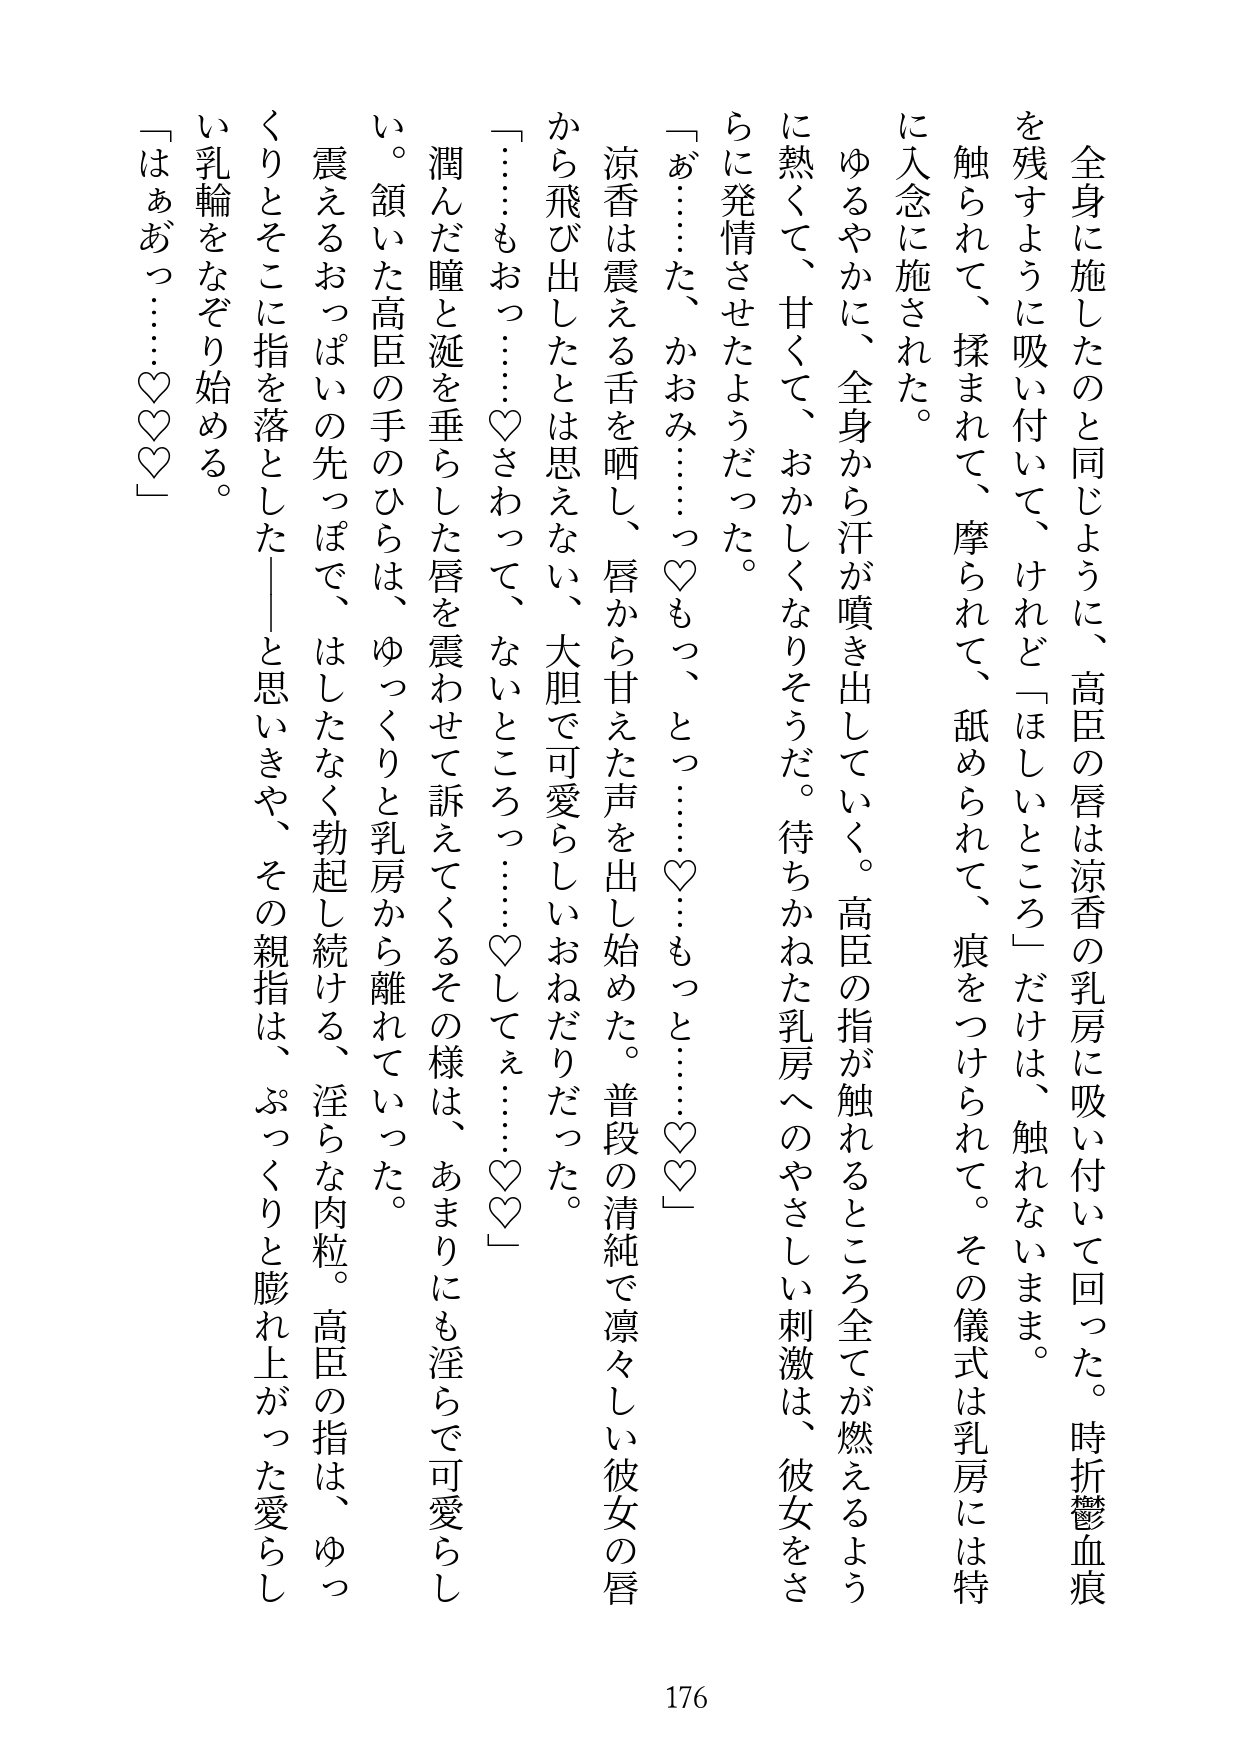 全身に施したのと同じように、高臣の唇は涼香の乳房に吸い付いて回った。時折鬱血痕
を残すように吸い付いて、けれど「ほしいところ」だけは、触れないまま。
　触られて、揉まれて、摩られて、舐められて、痕をつけられて。その儀式は乳房には特
に入念に施された。
　ゆるやかに、全身から汗が噴き出していく。高臣の指が触れるところ全てが燃えるよう
に熱くて、甘くて、おかしくなりそうだ。待ちかねた乳房へのやさしい刺激は、彼女をさ
らに発情させたようだった。
「あ゛……た、かおみ……っ♡もっ、とっ……♡…もっと……♡♡」
　涼香は震える舌を晒し、唇から甘えた声を出し始めた。普段の清純で凛々しい彼女の唇
から飛び出したとは思えない、大胆で可愛らしいおねだりだった。
「……もおっ……♡さわって、ないところっ……♡してぇ……♡♡」
　潤んだ瞳と涎を垂らした唇を震わせて訴えてくるその様は、あまりにも淫らで可愛らし
い。頷いた高臣の手のひらは、ゆっくりと乳房から離れていった。
　震えるおっぱいの先っぽで、はしたなく勃起し続ける、淫らな肉粒。高臣の指は、ゆっ
くりとそこに指を落とした――と思いきや、その親指は、ぷっくりと膨れ上がった愛らし
い乳輪をなぞり始める。
「はぁあ゛っ……♡♡♡」
176